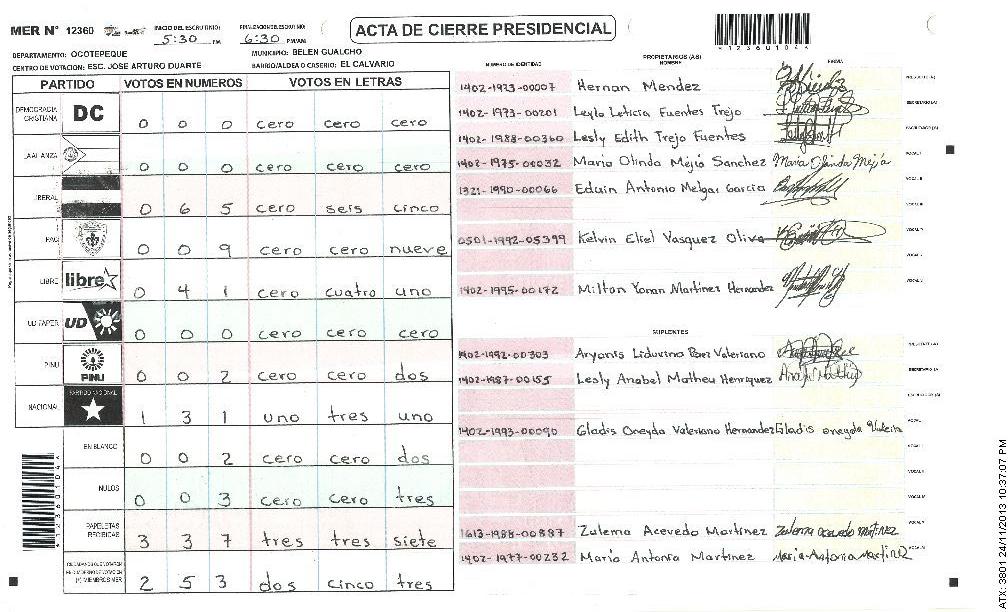 MER N° 12360
INICIO DEL ESCRUTINIO: 5:30 PM
FINALIZACION DEL ESCRUTINIO: 6:30 PM/AM
ACTA DE CIERRE PRESIDENCIAL
DEPARTAMENTO: OCOTEPEQUE
MUNICIPIO: BELEN GUALCHO
CENTRO DE VOTACION: ESC. JOSE ARTURO DUARTE
BARRIO/ALDEA O CASERIO: EL CALVARIO
PARTIDO VOTOS EN NUMEROS VOTOS EN LETRAS
DEMOCRACIA CRISTIANA DC 0 0 0 cero cero cero
LA ALIANZA 0 0 0 cero cero cero
LIBERAL 0 6 5 cero seis cinco
PAC 0 0 9 cero cero nueve
LIBRE libre 0 4 1 cero cuatro uno
UD FAPER UD 0 0 0 cero cero cero
PINU PINU 0 0 2 cero cero dos
NACIONAL PARTIDO NACIONAL 1 3 1 uno tres uno
EN BLANCO 0 0 2 cero cero dos
NULOS 0 0 3 cero cero tres
PAPELETAS RECIBIDAS 3 3 7 tres tres siete
CIUDADANOS QUE VOTARON EN CUADERNO DE VOTACION (+) MIEMBROS MER 2 5 3 dos cinco tres
NUMERO DE IDENTIDAD PROPIETARIOS (AS) NOMBRE FIRMA
1402-1973-00007 Hernan Mendez
1402-1973-00201 Leyla Leticia Fuentes Trejo
1402-1988-00360 Lesly Edith Trejo Fuentes
1402-1975-00032 Maria Olinda Mejia Sanchez Maria Olinda Mejia
1321-1990-00066 Eduin Antonio Melgar Garcia
0501-1992-05399 Kelvin Eliel Vasquez Oliva
1402-1995-00172 Milton Yonan Martinez Hernandez
SUPLENTES
1402-1992-00303 Aryanis Liduvina Perez Valeriano
1402-1987-00155 Lesly Anabel Matheu Henriquez
1402-1993-00090 Gladis Oneyda Valeriano Hernandez Gladis oneyda
1613-1988-00887 Zulema Acevedo Martinez Zulema acevedo Martinez
1402-1977-00232 Maria Antonia Martinez Maria Antonia Martinez
ATX: 3801 24/11/2013 10:37:07 PM